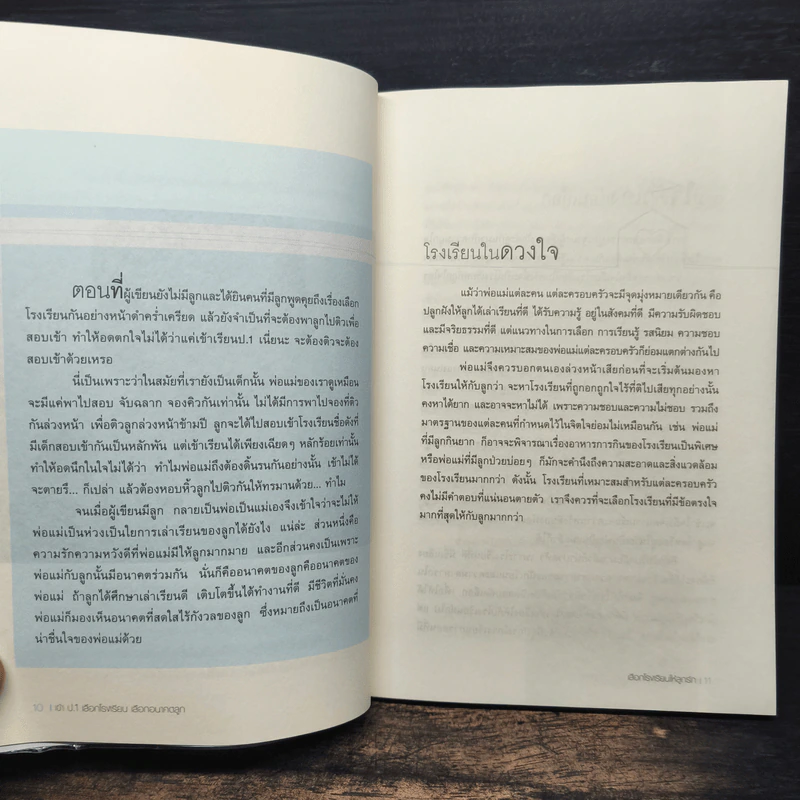 ตอนที่ผู้เขียนยังไม่มีลูกและได้ยินคนที่มีลูกพูดคุยถึงเรื่องเลือก
โรงเรียนกันอย่างหน้าดำคร่ำเครียด แล้วยังจำเป็นที่จะต้องพาลูกไปติวเพื่อ
สอบเข้า ทำให้อดตกใจไม่ได้ว่าแค่เข้าเรียนป.1 เนี่ยนะ จะต้องติวจะต้อง
สอบเข้าด้วยเหรอ
นี่เป็นเพราะว่าในสมัยที่เรายังเป็นเด็กนั้น พ่อแม่ของเราดูเหมือน
จะมีแค่พาไปสอบ จับฉลาก จองคิวกันเท่านั้น ไม่ได้มีการพาไปจองที่ติว
กันล่วงหน้า เพื่อติวลูกล่วงหน้าข้ามปี ลูกจะได้ไปสอบเข้าโรงเรียนชื่อดังที่
มีเด็กสอบเข้ากันเป็นหลักพัน แต่เข้าเรียนได้เพียงเฉียดๆ หลักร้อยเท่านั้น
ทำให้อดนึกในใจไม่ได้ว่า ทำไมพ่อแม่ถึงต้องดิ้นรนกันอย่างนั้น เข้าไม่ได้
จะตายรึ... ก็เปล่า แล้วต้องหอบหิ้วลูกไปติวกันให้ทรมานด้วย... ทำไม
จนเมื่อผู้เขียนมีลูก กลายเป็นพ่อเป็นแม่เองจึงเข้าใจว่าจะไม่ให้
พ่อแม่เป็นห่วงเป็นใยการเล่าเรียนของลูกได้ยังไง แน่ล่ะ ส่วนหนึ่งคือ
ความรักความหวังดีที่พ่อแม่มีให้ลูกมากมาย และอีกส่วนคงเป็นเพราะ
พ่อแม่กับลูกนั้นมีอนาคตร่วมกัน นั่นก็คืออนาคตของลูกคืออนาคตของ
พ่อแม่ ถ้าลูกได้ศึกษาเล่าเรียนดี เติบโตขึ้นได้ทำงานที่ดี มีชีวิตที่มั่นคง
พ่อแม่ก็มองเห็นอนาคตที่สดใสไร้กังวลของลูก ซึ่งหมายถึงเป็นอนาคตที่
น่าชื่นใจของพ่อแม่ด้วย
10 | เข้า ป.1 เลือกโรงเรียน เลือกอนาคตลูก
โรงเรียนในดวงใจ
แม้ว่าพ่อแม่แต่ละคน แต่ละครอบครัวจะมีจุดมุ่งหมายเดียวกัน คือ
ปลูกฝังให้ลูกได้เล่าเรียนที่ดี ได้รับความรู้ อยู่ในสังคมที่ดี มีความรับผิดชอบ
และมีจริยธรรมที่ดี แต่แนวทางในการเลือก การเรียนรู้ รสนิยม ความชอบ
ความเชื่อ และความเหมาะสมของพ่อแม่แต่ละครอบครัวก็ย่อมแตกต่างกันไป
พ่อแม่จึงควรบอกตนเองล่วงหน้าเสียก่อนที่จะเริ่มต้นมองหา
โรงเรียนให้กับลูกว่า จะหาโรงเรียนที่ถูกอกถูกใจไร้ที่ติไปเสียทุกอย่างนั้น
คงหาได้ยาก และอาจจะหาไม่ได้ เพราะความชอบและความไม่ชอบ รวมถึง
มาตรฐานของแต่ละคนที่กำหนดไว้ในจิตใจย่อมไม่เหมือนกัน เช่น พ่อแม่
ที่มีลูกกินยาก ก็อาจจะพิจารณาเรื่องอาหารการกินของโรงเรียนเป็นพิเศษ
หรือพ่อแม่ที่มีลูกป่วยบ่อยๆ ก็มักจะคำนึงถึงความสะอาดและสิ่งแวดล้อม
ของโรงเรียนมากกว่า ดังนั้น โรงเรียนที่เหมาะสมสำหรับแต่ละครอบครัว
คงไม่มีคำตอบที่แน่นอนตายตัว เราจึงควรที่จะเลือกโรงเรียนที่มีข้อตรงใจ
มากที่สุดให้กับลูกมากกว่า
เลือกโรงเรียนให้ลูกรัก | 11